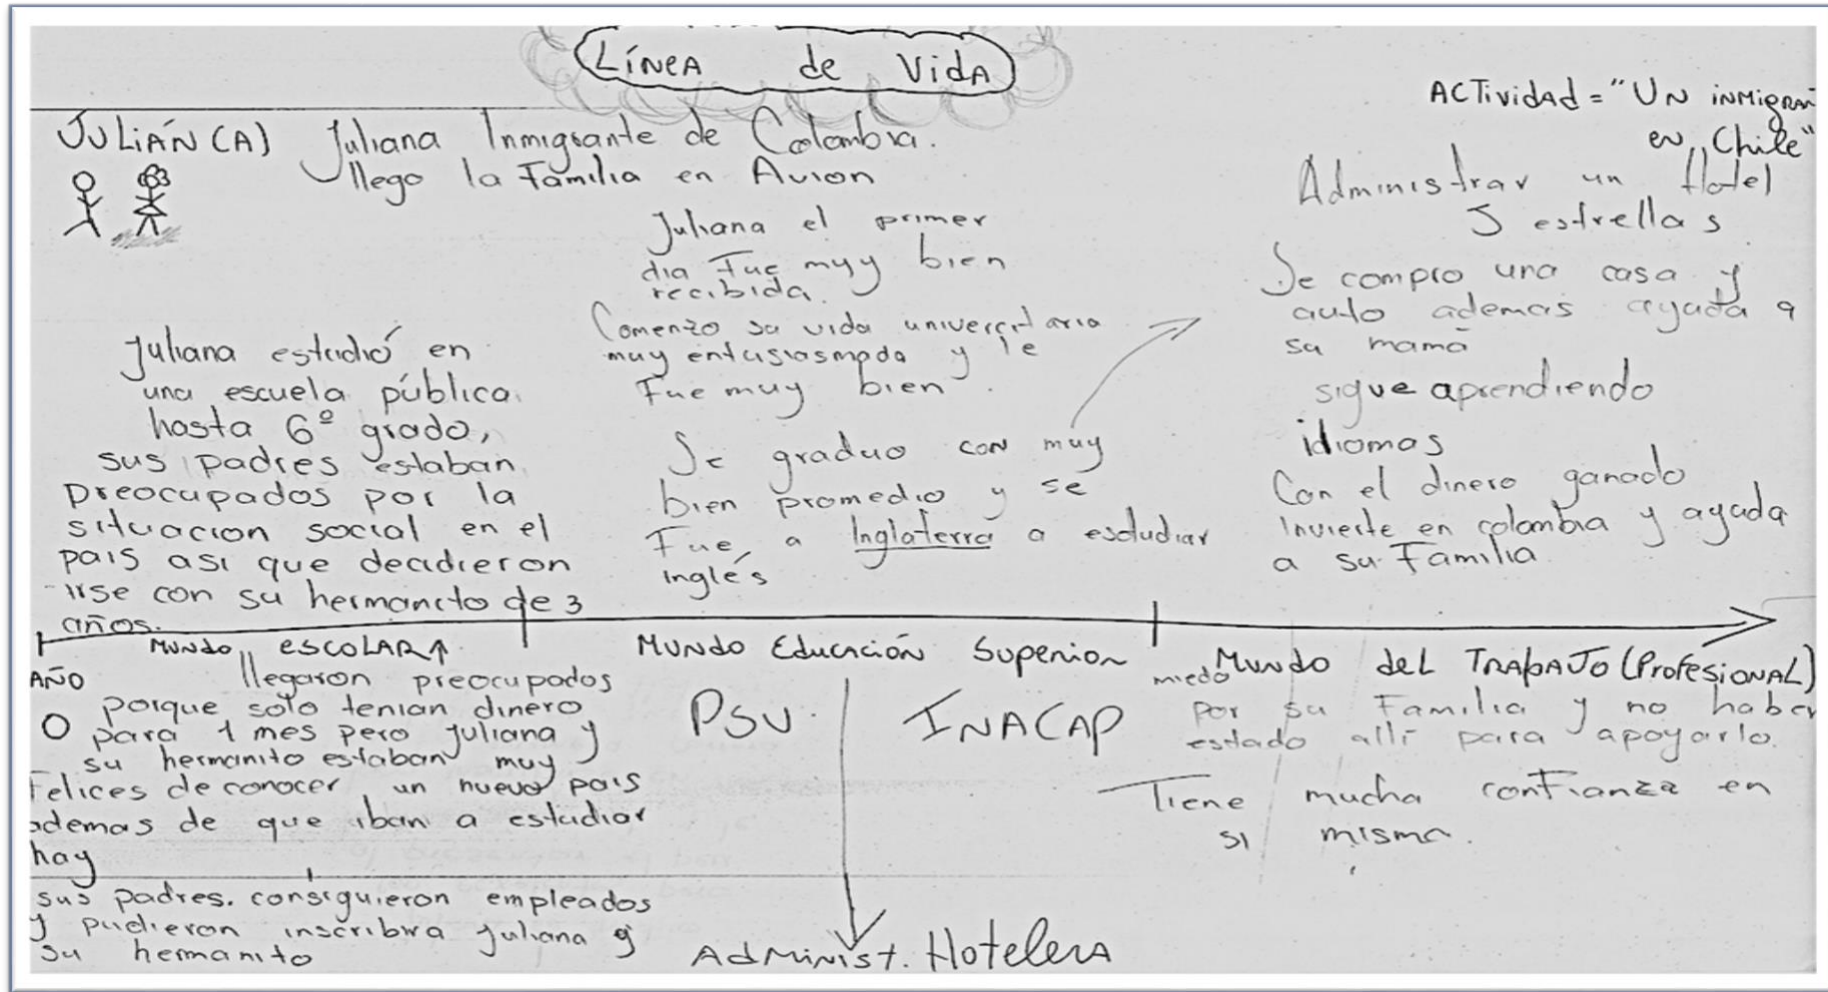 Línea de Vida
ACTividAd = "UN inMigran
en Chile"
JULIÁN (A)
Juliana Inmigrante de Colombia.
llego la Familia en Avion
Juliana estudió en
una escuela pública
hasta 6º grado,
sus padres estaban
preocupados por la
situacion social en el
pais asi que decadieron
irse con su hermancto de 3
años.
Juliana el primer
dia Fue muy bien
recibida.
Comenzo su vida universitaria
muy entusiasmada y le
Fue muy bien.
Se graduo con muy
bien promedio y se
Fue, a Inglaterra a esdudiar
inglés
Administrar un Hotel
5 estrellas
Se compro una casa y
auto ademas ayuda a
su mamá
sigue aprendiendo
idiomas
Con el dinero ganado
invierte en colombia y ayuda
a su Familia
MUNdo ESCOLAR
MUNdo Educación Superior
MUNdo del TRABAJO (Profesional)
AÑO
0
llegaron preocupados
porque solo tenian dinero
para 1 mes pero Juliana y
su hermanito estaban muy
Felices de conocer un nuevo pais
ademas de que iban a estudiar
hay
sus padres. consiguieron empleados
y pudieron inscribira Juliana y
su hermanito
PSU
INACAP
Administ. Hotelera
miedo
por su Familia y no haber
estado allí para apoyarlo.
Tiene mucha confianza en
si misma.